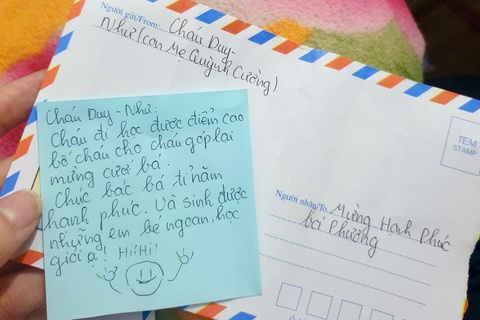 Người gửi/From: Cháu Duy-
Như (con Mẹ Quỳnh Cường)
Cháu Duy - Như:
Cháu đi học được điểm cao
bố cháu cho cháu góp lại
mừng cưới bá.
Chúc bác bá tỉ năm
hạnh phúc. Và sinh được
những em bé ngoan, học
giỏi ạ! Hi!Hi!
TEM
STAMP
Người nhận/To: Mừng Hạnh Phúc
bá Phương